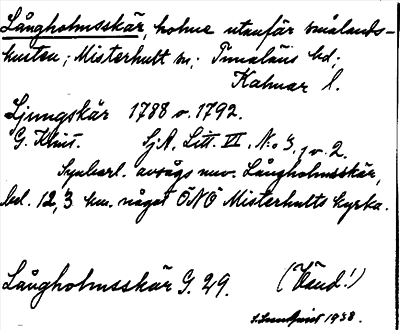 Långholmsskär, holme utanför smålands-
kusten; Misterhult sn; Tunaläns hd;
Kalmar l.
Ljungskär 1788 o. 1792.
G. Klint. SjA, Litt. VI, N:o 3, 1 o. 2.
Synbarl. avsågs nuv. Långholmsskär,
bel. 12,3 km. något ÖNÖ Misterhults kyrka.
Långholmsskär G. 29. (Vänd!)
S. Lundqvist 1938.